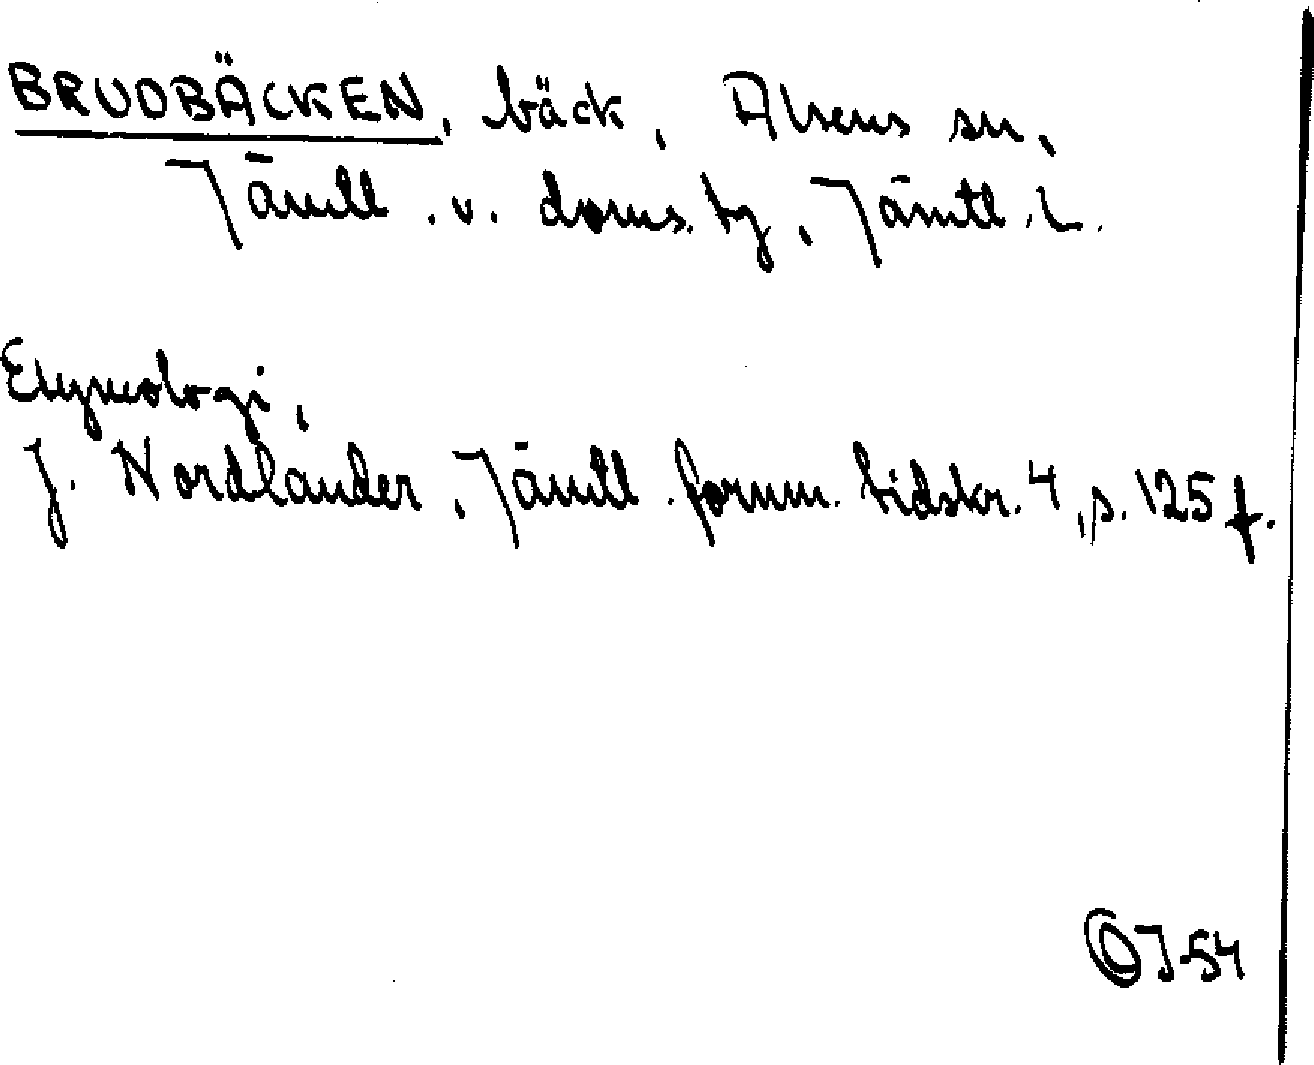 BRUDBÄCKEN, bäck, Alsens sn,
Jämtl. v. doms. tg, Jämtl. l.
Etymologi,
J. Nordlander, Jämtl. fornm. tidskr. 4, s. 125 f.
OJ-54